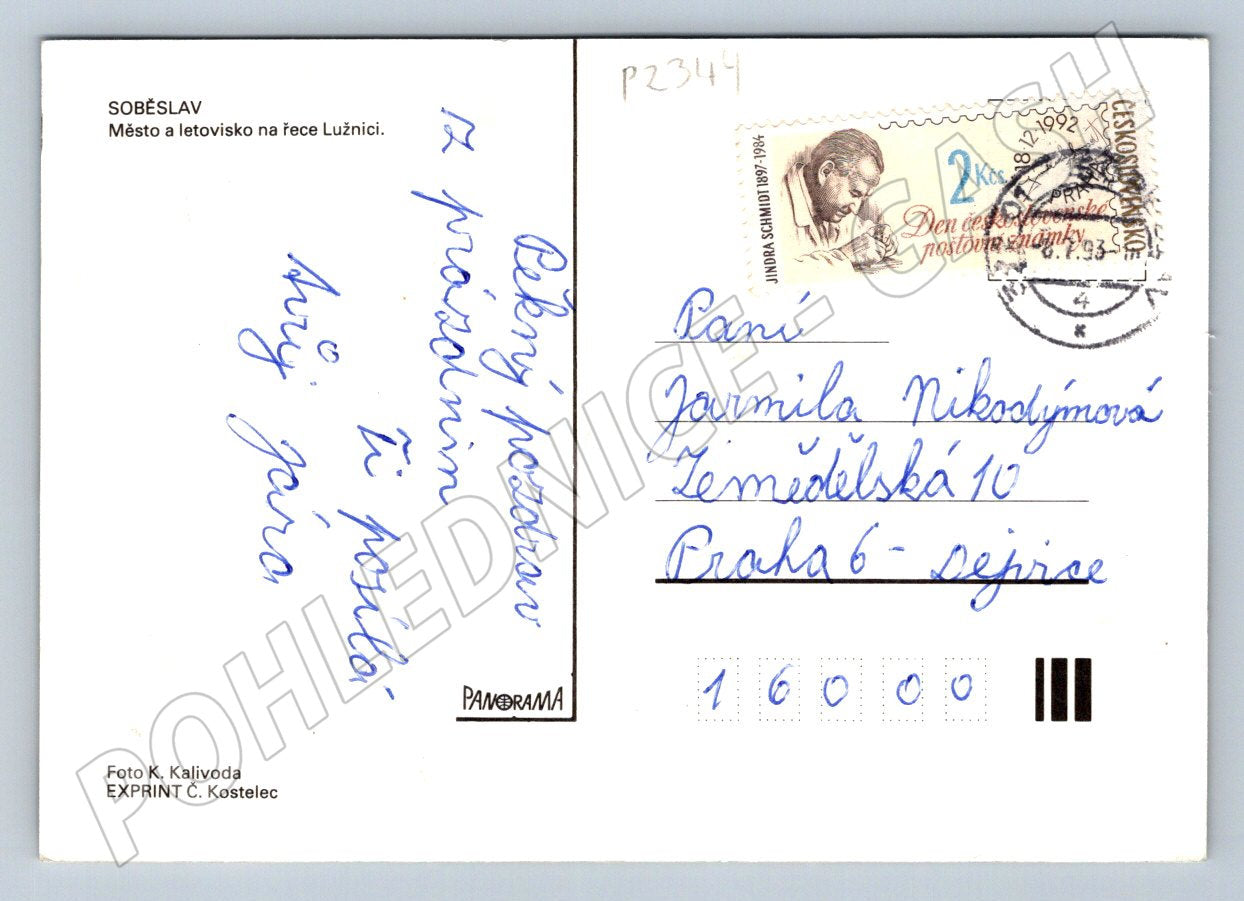 SOBĚSLAV
Město a letovisko na řece Lužnici.
Pěkný pozdrav
z prázdnin
Ti posílá
Tvůj Jára
PANORAMA
Foto K. Kalivoda
EXPRINT Č. Kostelec
P2344
JINDRA SCHMIDT 1897-1984
2 Kčs
Den československé
poštovní známky
18·12·1992
PRAHA
ČESKOSLOVENSKO
-8.7.93-
4
Paní
Jarmila Nikodýmová
Zemědělská 10
Praha 6 - Dejvice
160 00
POHLEDNICE - CASH